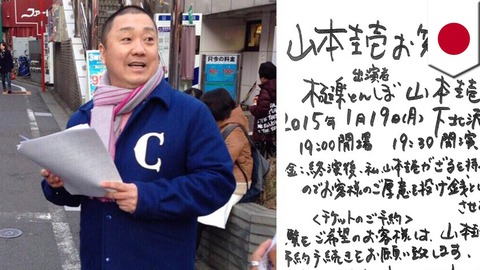 C
只今の料金
山本圭壱お
出演者
極楽とんぼ 山本圭壱
2015年1月19日(月) 下北沢
19:00開場 19:30開演
金:終演後、私、山本圭壱がざるを持
のでお客様のご厚意を投げ銭と
させ
<チケットのご予約>
覧をご希望のお客様は、山本圭
予約手続きをお願い致します。